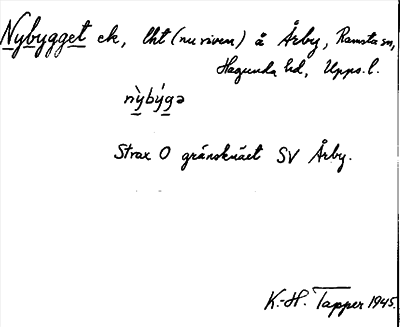 Nybygget ek, lht (nu riven) å Årby, Ramsta sn,
Hagunda hd, Upps. l.
nỳbýgə
Strax O gränsknäet SV Årby.
K.-H. Tapper 1945.